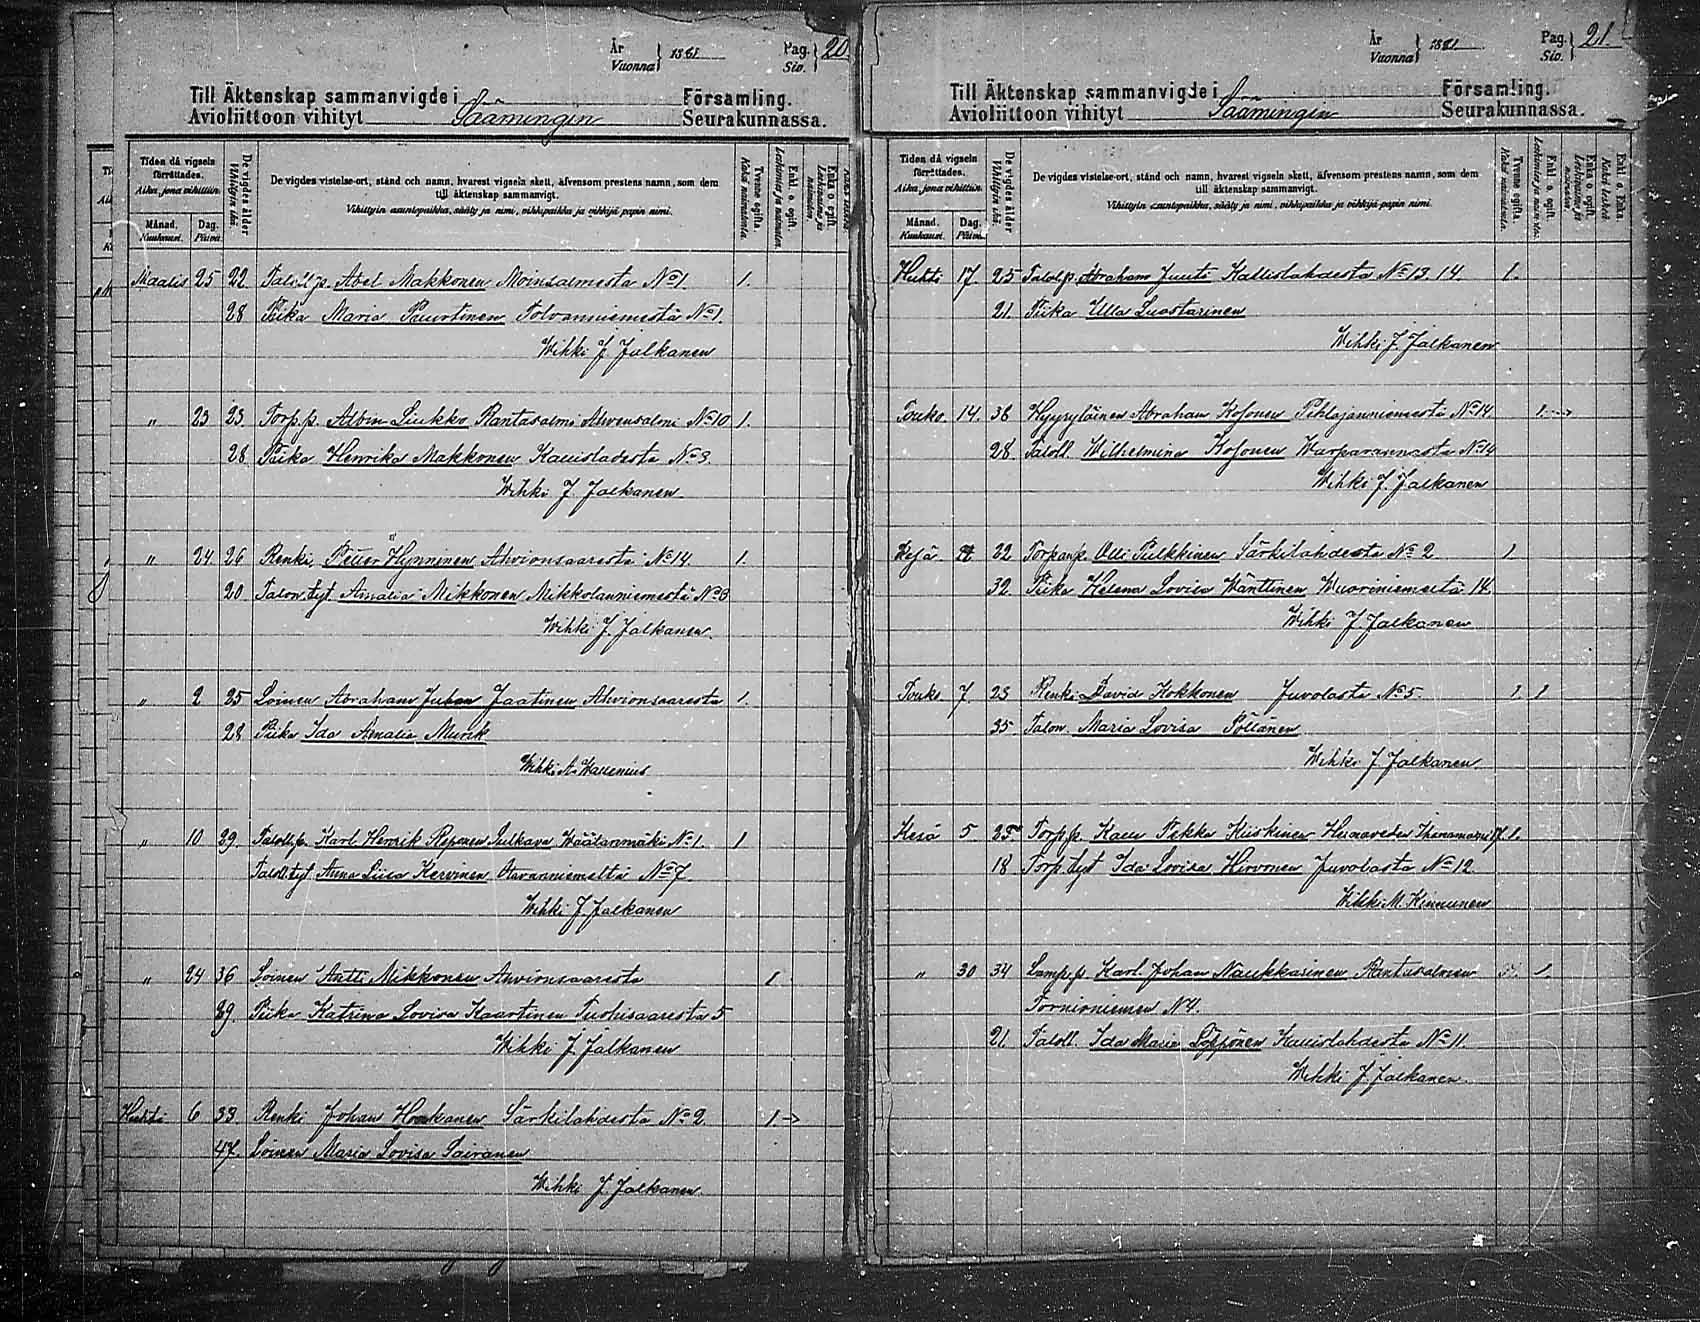 År
Vuonna } 1881 Pag. Siv. } 20
Till Äktenskap sammanvigde i Församling.
Avioliittoon vihityt Säämingin Seurakunnassa.
Tiden då vigseln förrättades.
Aika, jona vihittiin
Månad. Dag.
Kuukausi. Päivä.
De vigdes ålder
Vihittyin ikä.
De vigdes vistelse-ort, stånd och namn, hvarest vigseln skett, äfvensom prestens namn, som dem
till äktenskap sammanvigt.
Vihittyin asuntopaikka, sääty ja nimi, vihkipaikka ja vihkijä papin nimi.
Tvenne ogifta.
Kaksi naimatonta.
Maalis 25 22 Abel Makkonen Moinsalmesta No 1. 1.
28 Piika Maria Tolvanniemestä No 1.
Wihki J. Jalkanen
" 23 23. Torp.p. Albin Liukko Rantasalmi Ahvensalmi No 10 1.
28 Piika Henrika Makkonen No 3.
Wihki J. Jalkanen
" 24 26 Renki Hynninen Ahvionsaaresta No 14. 1.
20 Talon.tyt. Amalia Mikkonen Mikkolanniemestä No 3
Wihki J. Jalkanen.
" 2 25 Loinen Abraham Juhan Jaatinen Ahvionsaaresta 1.
28 Piika Ida Amalia
Wihki A. Wallenius
" 10 29. Karl Henrik Reponen Sulkava Väätänmäki No 1. 1
Taloll.tyt Anna Liisa Kervinen No 7.
Wihki J. Jalkanen
" 24 36 Loinen Antti Mikkonen Ahvionsaaresta 1
39. Piika Katrina Lovisa Kaartinen Tuohisaaresta 5
Wihki J. Jalkanen
Huhti 6 33 Renki Johan Särkilahdesta No 2. 1
47. Loinen Maria Lovisa Sairanen
Wihki J. Jalkanen.
År
Vuonna } 1881. Pag. Siv. } 21.
Till Äktenskap sammanvigde i Församling.
Avioliittoon vihityt Säämingin Seurakunnassa.
Tiden då vigseln förrättades.
Aika, jona vihittiin.
Månad. Dag.
Kuukausi. Päivä.
De vigdes ålder
Vihittyin ikä.
De vigdes vistelse-ort, stånd och namn, hvarest vigseln skett, äfvensom prestens namn, som dem
till äktenskap sammanvigt.
Vihittyin asuntopaikka, sääty ja nimi, vihkipaikka ja vihkijä papin nimi.
Tvenne ogifta.
Kaksi naimatonta.
Huhti 17. 25 Talol.p. Abraham Juuti Kallislahdesta No 13. 14. 1.
21. Piika Ulla Luostarinen
Wihki J. Jalkanen
Touko. 14. 38 Kyyryläinen Abraham Kosonen Pihlajanniemestä No 14 1.
28. Taloll. Wilhelmina Kosonen Warparannasta No 14
Wihki J. Jalkanen
Kesä 22 Torpanp. Olli Pulkkinen Särkilahdesta No 2 1.
32. Piika Helena Lovisa Wänttinen Wuoriniemeltä 14.
Wihki J. Jalkanen
Touko. 7. 23 Renki David Kokkonen Juvolasta No 5. 1. 1
35 Talon. Maria Lovisa Pöllänen
Wihki J. Jalkanen.
Kesä 5 25 Torp.p. Pekka Kiiskinen 17. 1.
18 Torp.tyt Ida Lovisa Hirvonen Juvolasta No 12.
Wihki M. Kinnunen
" 30 34 Lamp.p. Karl Johan Naukkarinen Rantasalmen 1.
Tornioniemen N 4.
21. Taloll. Ida Maria No 11.
Wihki J. Jalkanen.